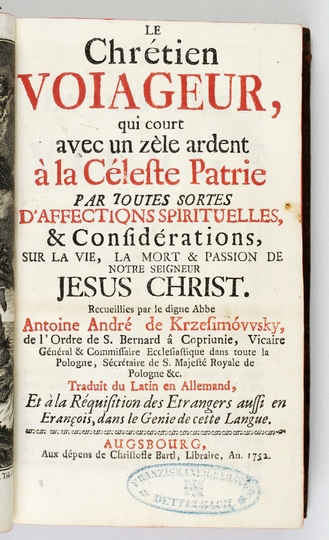 LE
Chrétien
VOIAGEUR,
qui court
avec un zèle ardent
à la Céleste Patrie
PAR TOUTES SORTES
D'AFFECTIONS SPIRITUELLES,
& Considérations,
SUR LA VIE, LA MORT & PASSION DE
NOTRE SEIGNEUR
JESUS CHRIST.
Recueillies par le digne Abbe
Antoine André de Krzesimóvvsky,
de l'Ordre de S. Bernard â Copriunie, Vicaire
Général & Commissaire Ecclesiastique dans toute la
Pologne, Sécrétaire de S. Majesté Royale de
Pologne &c.
Traduit du Latin en Allemand,
Et à la Réquisition des Etrangers aussi en
Erançois, dans le Genie de cette Langue.
AUGSBOURG,
Aux dépens de Christofle Bartl, Libraire, An. 1752.
FRANZISKANERKLOSTER
DETTELBACH